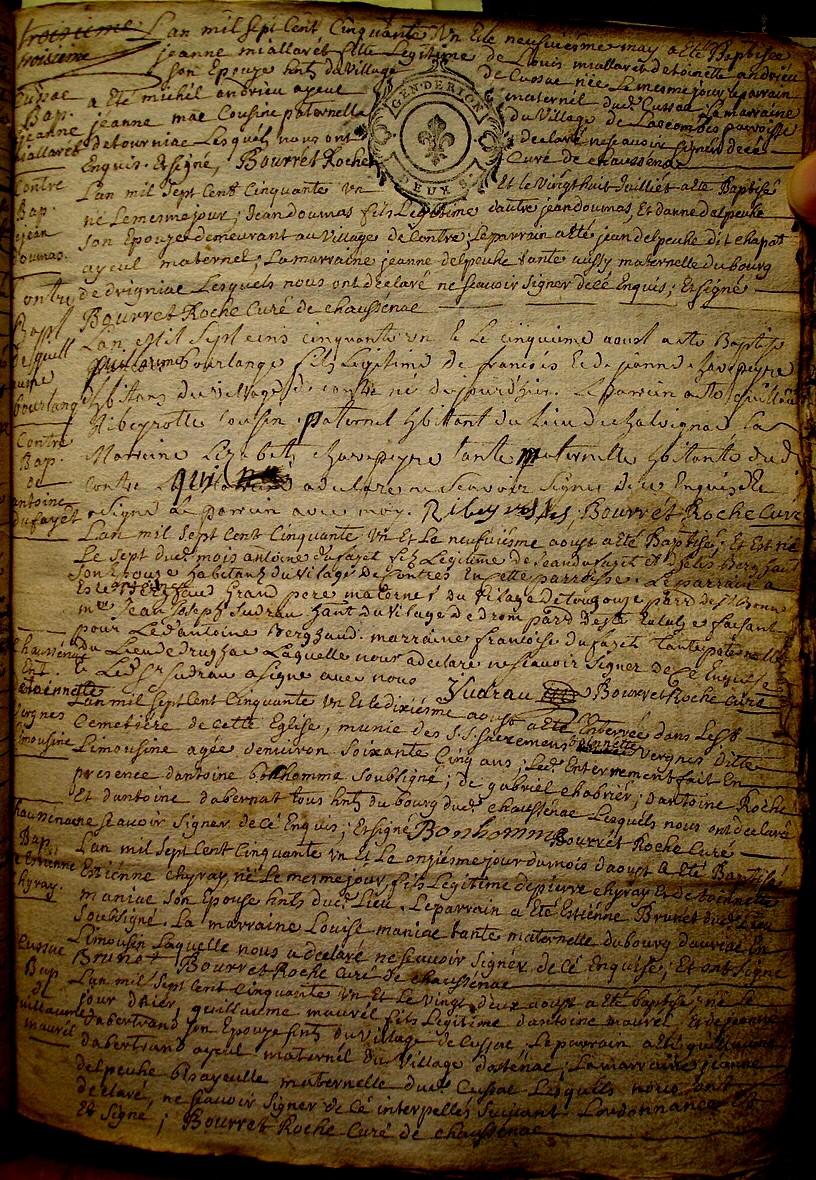 troisieme
troisieme
L'an mil sept Cent Cinquante Un Et le neufuiesme may a Eté Baptisée
jeanne miallaret fille Legitime de Louis miallaret et de toinette andrieu
son Epouze hnts du Village de Cussac née Le mesme jour, Le parrain
a Eté michel andrieu ayeul maternel dud. Cussac La marraine
jeanne mae Cousine paternelle du Village de Lascombes parroisse
de tourniac Lesquels nous ont declaré ne scavoir signer de cé
Enquis. Et signé, Bourret Roche Curé de chaussenac
GEN DE RION
DEUX S
Cussac
Bap.
jeanne
miallaret
L'an mil sept Cent Cinquante Un Et le vingt huit juilliét a Eté Baptisé
né Le mesme jour, Jean doumas fils Legitime d'autre jean doumas, Et d'anne delpeuhe
son Epouze demeurant au Village de Contre; Le parrain a Eté jean delpeuhe dit chapat
ayeul maternel; La marraine jeanne delpeuhe tante aussy maternelle du bourg
de drigniac Lesquels nous ont declaré ne scavoir signer de cé Enquis; Et signé
Bourret Roche Curé de chaussénac
Contre
Bap.
jean
doumas.
L'an Mil sept cens cinquante un & Le cinquieme aoust a ete Baptise
guilaume bourlange fils Legitime de francois & de jeanne chavepeyre
hbitans du village de contre né d'aujourd'huy. Le parrain a ete guillau
Ribeyrolle cousin paternel hbitant du Lieu de chalvignac La
Marreine Lizabets chavepeyre tante maternelle hbitante dud
contre qui a declare ne scavoir signer de ce Enquise &
a signé Le parrein avec moy. Ribeyrolles, Bourret Roche Curé
Contre
Bapt
de guill
aume
bourlange
L'an mil sept Cent Cinquante Un Et Le neufuiesme aoust a Eté Baptisé, Et Est né
Le sept dud. mois antoine dufayet fils Legitime de Jean dufayet et
son Epouze habitants du Vilage de Contres En cette parroisse. Le parrain a
Esté grand pere maternel du Vilage de
mre Jean Joseph Sudrau hant du Vilage de drom pard de ste Eulalye faisant
pour Led antoine Bergeaud. marraine francoise du fayet tante paternelle
du Lieu de Laquelle nous a declare ne scavoir signer de Ce Enquise
& Led Sr Sudrau a signe avec nous
Sudrau Bourret Roche Curé
Contre
Bap.
de
antoine
dufayet
L'an mil sept Cent Cinquante Un Et le dixiésme aoust a Eté Enterrée dans Les
Cemetiére de cette Eglise, munie des S.S. Sacremens toinette Vergnes ditte
Limousine agée d'environ soixante Cinq ans; Led. Enterrement fait En
presence d'antoine bonhomme soubsigné; de gabriel chabrier; d'antoine Roche
Et d'antoine dabernat tous hnts du bourg dud. chaussénac Lesquels nous ont declaré
ne scavoir signer de Cé Enquis; Et signé Bonhomme Bourret Roche Curé
chaussénac
Ent.
toinnette
Vergnes
Limousine
L'an mil sept Cent Cinquante Un Et Le onziésme jour du mois d'aoust a Eté Baptisé
Estiénne chyray, né Le mesme jour, fils Legitime de pierre chyray Et de toinnette
maniac son Epouse hnts dud. Lieu. Le parrain a Eté Estiénne Brunet dud. Lieu
soubsigné. La marraine Louise maniac tante maternelle du bourg d'auriac En
Limousin Laquelle nous a declaré ne scavoir signer de Cé Enquise; Et ont signé
Brunet Bourret Roche Curé de chaussénac
chaussénac
Bap.
Estienne
chyray.
L'an mil sept Cent Cinquante Un Et Le vingt deux aoust a Eté baptisé né Le
jour d'hier, guilhaume maurel fils Legitime d'antoine maurel Et de jeanne
dabertrand son Epouze hnts du Village de Cussac. Le parrain a Eté guilhaume
dabertrand ayeul maternel du Village d'ostenac; La marraine jeanne
delpeuhe bisayeulle maternelle dud. Cussac Lesquels nous ont
declaré, ne scavoir signer de Cé interpellés suivant L'ordonnance Et
Et signé; Bourret Roche Curé de chaussénac
Cussac
Bap
de
guillaume
maurel